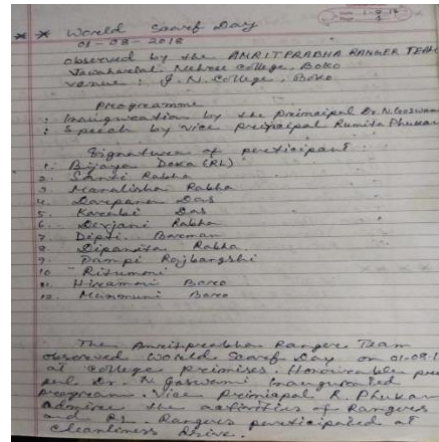 World Scarf Day
01-08-2018
observed by the AMRITPRABHA RANGER TEAM
Jawaharlal Nehru College, Boko
venue : J. N. College, Boko
Programme
: Inauguration by the principal Dr. N. Goswami
: Speech by vice principal Rumita Phukan
Signature of participant :
1. Bijaya Deka (RL)
2. Rabha
3. Rabha
4. Darpana Das
5. Karabi Das
6. Devjani Rabha
7. Dipti Barman
8. Dipanita Rabha
9. Pampi Rajbangshi
10
11. Hiramoni Boro
12. Boro
The Amritprabha Rangers Team
observed World Scarf Day on 01-08-1
at college premises. Honourable
Dr. N. Goswami inaugurated
program. Vice principal R. Phukan
the activities of Rangers
and RL. Rangers participated at
Cleanliness Drive.